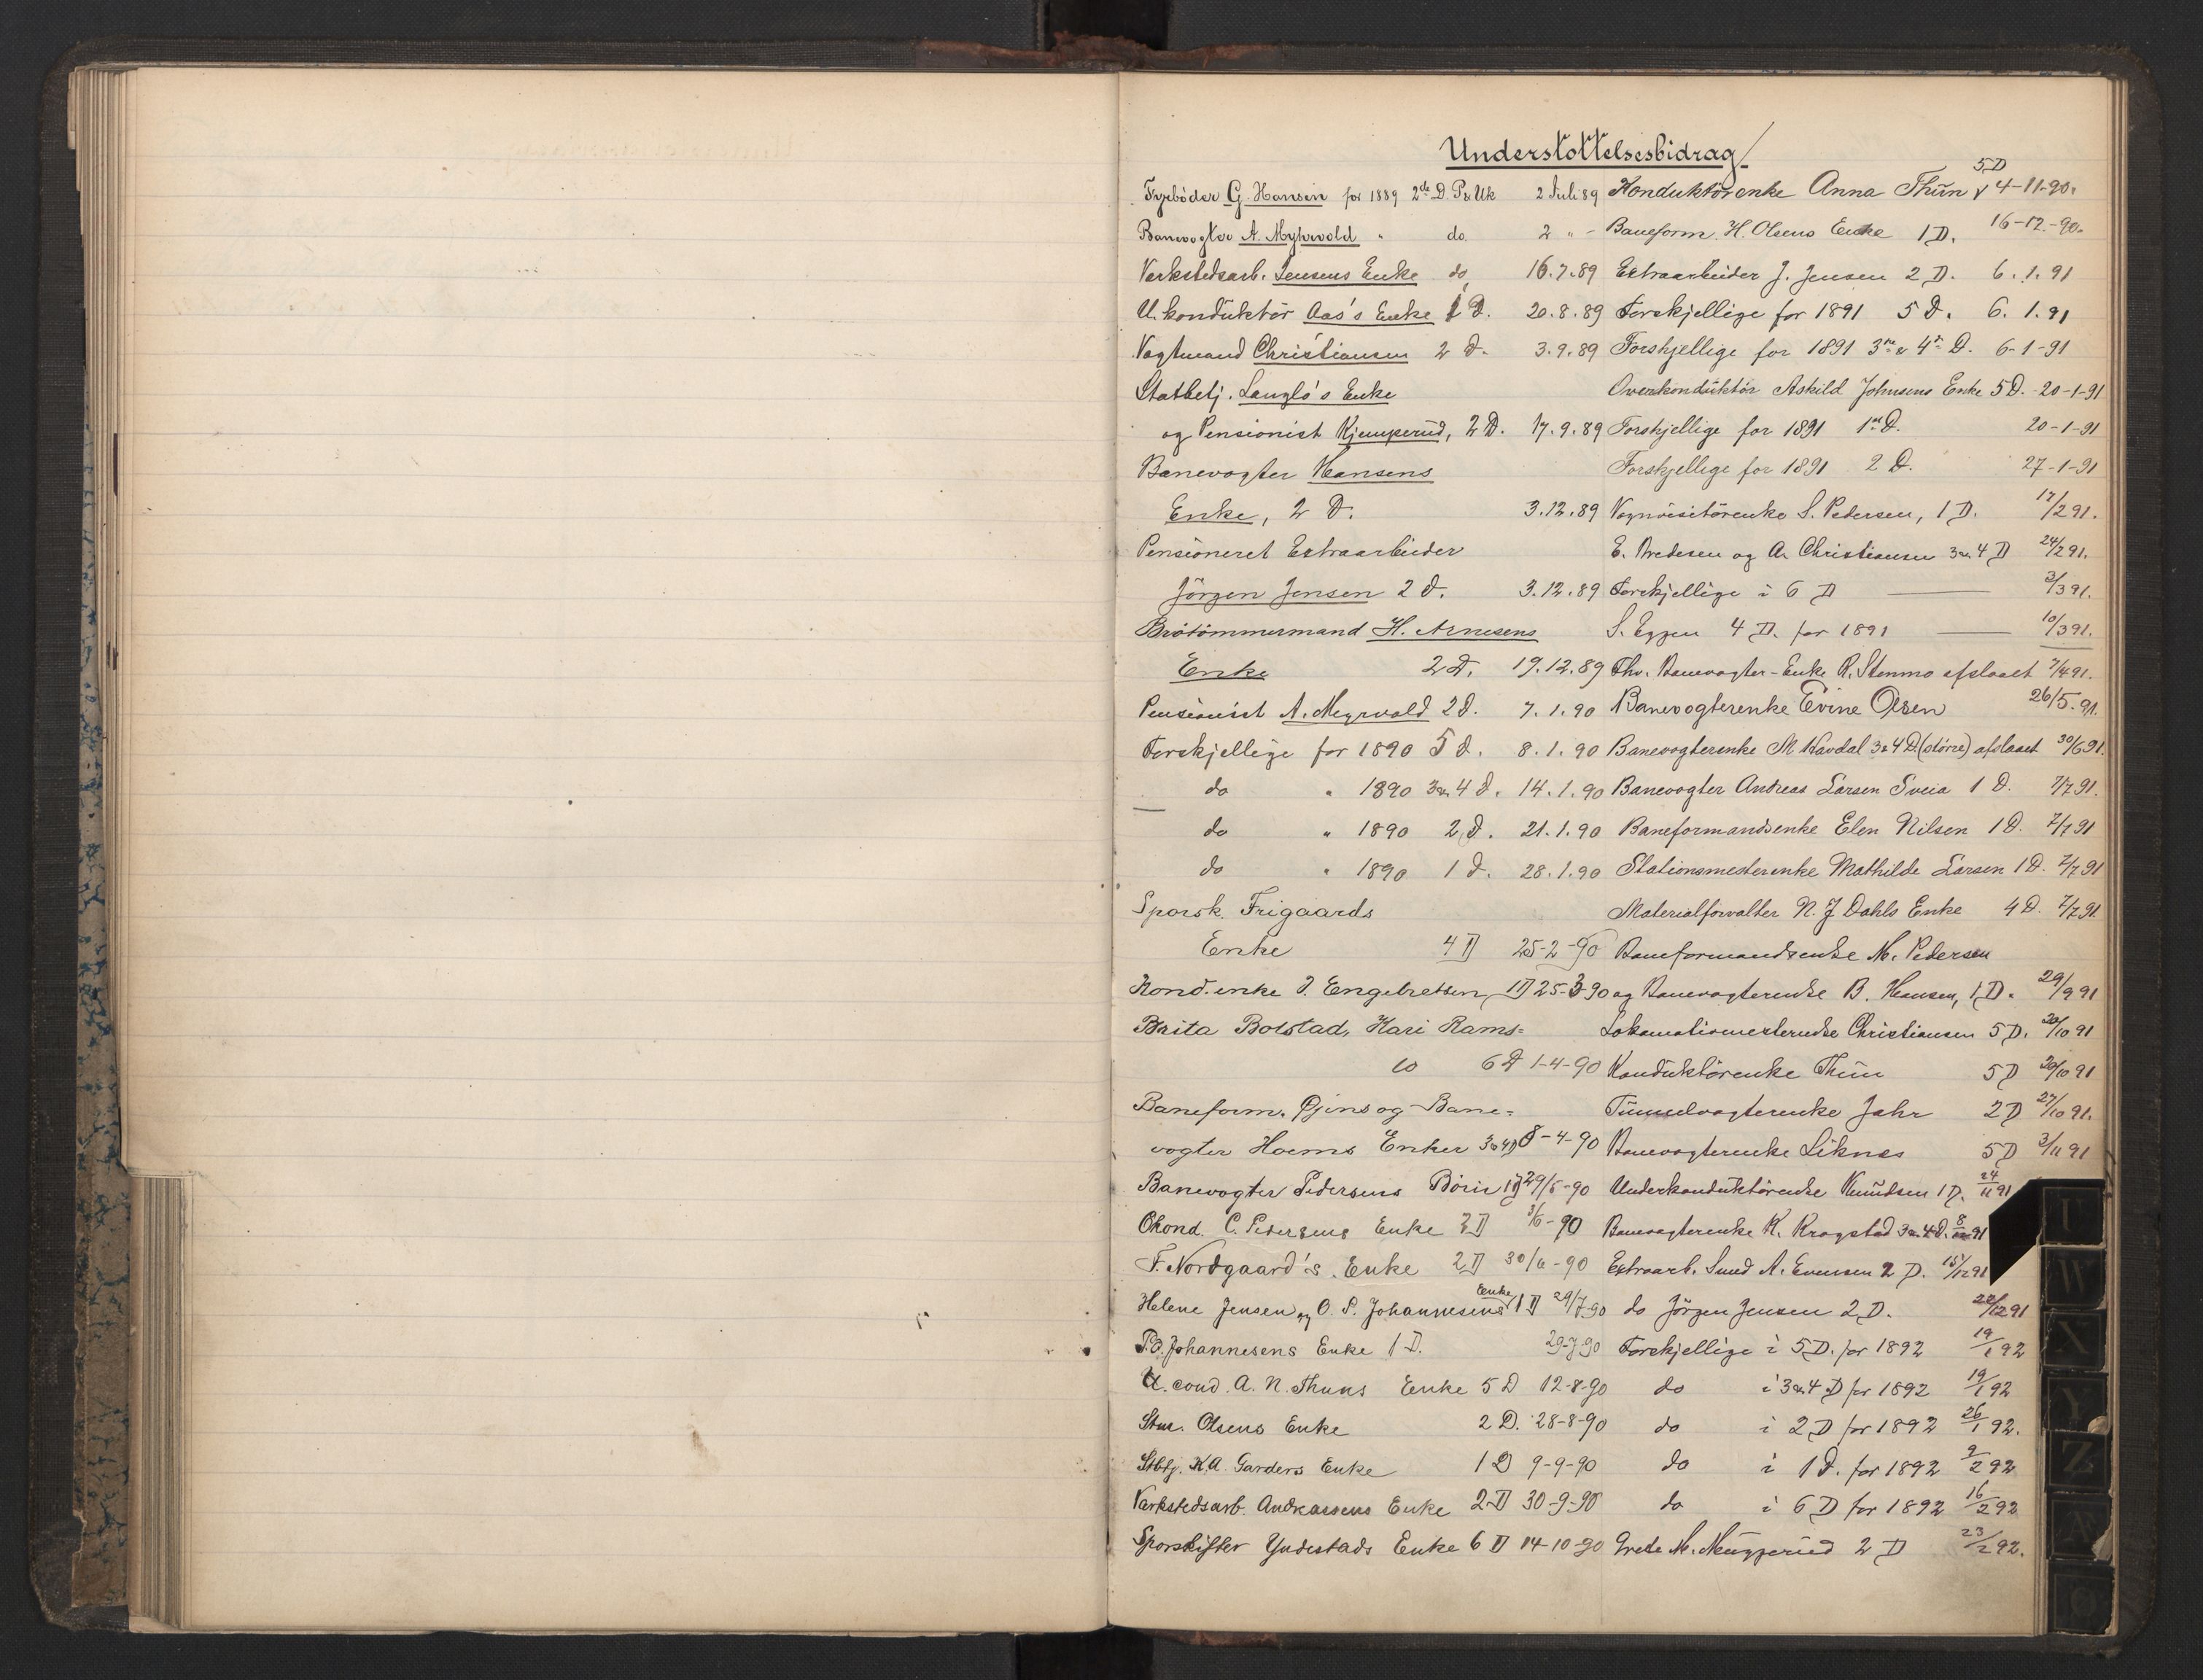 Understøttelsesbidrag
Fyrbøder G. Hansen for 1889 2de D. P & Uk 2 Juli 89
Banevogter A. Myhrvold " do 2 " -
Verkstedsarb. Jensens Enke do 16.7.89
U. konduktør Aas's Enke 1 D. 20.8.89
Vagtmand Christiansen 2 D. 3.9.89
Statbetj. Langlo's Enke
og Pensionist Kjemperud, 2 D. 17.9.89
Banevogter Hansens
Enke, 2 D. 3.12.89
Pensioneret Extraarbeider
Jörgen Jensen 2 D. 3.12.89
Brotömmermand H. Arnesens
Enke 2 D. 19.12.89
Pensionist A. Myrvold 2 D. 7.1.90
Forskjellige for 1890 5 D. 8.1.90
do " 1890 3 & 4 D. 14.1.90
do " 1890 2 D. 21.1.90
do " 1890 1 D. 28.1.90
Sporsk. Frigaards
Enke 4 D 25-2-90
Kond. enke J. Engebretsen, 1 D 25-3-90
Brita Bolstad, Kari Rams=
lo 6 D 1-4-90
Baneform. Gjens og Bane=
vogter Hoems Enker 3 & 4 D 8-4-90
Banevogter Pedersens Börn 1 D 29/5-90
Okond. C. Pedersens Enke 2 D 3/6-90
F. Nordgaard's Enke 2 D 30/6-90
Helene Jensen og O. P. Johannesens Enke 1 D 29/7-90
P. O. Johannesens Enke 1 D. 29-7-90
U. cond. A. N. Thuns Enke 5 D 12-8-90
Stm. Olsens Enke 2 D. 28-8-90
Stbtj. K. A. Garders Enke 1 D 9-9-90
Værkstedsarb. Andreassens Enke 2 D 30-9-90
Sporskifter Yndestads Enke 6 D 14-10-90
Konduktörenke Anna Thun 5 D 4-11-90.
Baneform. H. Olsens Enke 1 D. 16-12-90.
Extraarbeider J. Jensen 2 D. 6.1.91
Forskjellige for 1891 5 D. 6.1.91
Forskjellige for 1891 3die & 4de D. 6-1-91
Overkonduktör Askild Johnsens Enke 5 D. 20-1-91
Forskjellige for 1891 1ste D. 20-1-91
Forskjellige for 1891 2 D. 27-1-91
Vognvisitörenke S. Pedersen, 1 D. 17/2 91.
E. Bredesen og A. Christiansen 3 & 4 D 24/2 91.
Forskjellige i 6 D 3/3 91.
S. Eggen 4 D. for 1891 10/3 91.
Fhv. Banevogter-Enke R. Stenmo afslaaet 7/4 91.
Banevogterenke Evine Olsen 26/5. 91.
Banevogterenke M. Havdal 3 & 4 D (större) afslaaet 30/6 91.
Banevogter Andreas Larsen Sveia 1 D. 7/7 91.
Baneformandsenke Elen Nilsen 1 D. 7/7 91
Stationsmesterenke Mathilde Larsen 1 D. 7/7 91
Materialforvalter N. J. Dahls Enke 4 D. 7/7 91.
Baneformandsenke M. Pedersen
og Banevogterenke B. Hansen, 1 D. 29/9 91
Lokomotivmesterenke Christiansen 5 D. 20/10 91
Konduktörenke Thun 5 D 20/10 91
Tunnelvogterenke Jahr 2 D 27/10 91.
Banevogterenke Liknes 5 D 3/11 91
Underkonduktörenke Knudsen 1 D. 24/11 91
Banevogterenke K. Kragstad 3 & 4 D. 8/12 91
Extraarb. Smed A. Evensen 2 D. 15/12 91
do Jörgen Jensen 2 D. 22/12 91
Forskjellige i 5 D. for 1892 19/1 92
do i 3 & 4 D for 1892 19/1 92
do i 2 D for 1892 26/1 92.
do i 1 D. for 1892 9/2 92
do i 6 D for 1892 16/2 92
Grete M. Muggerud 2 D 23/2 92.
W
X
Y
Z
Ø